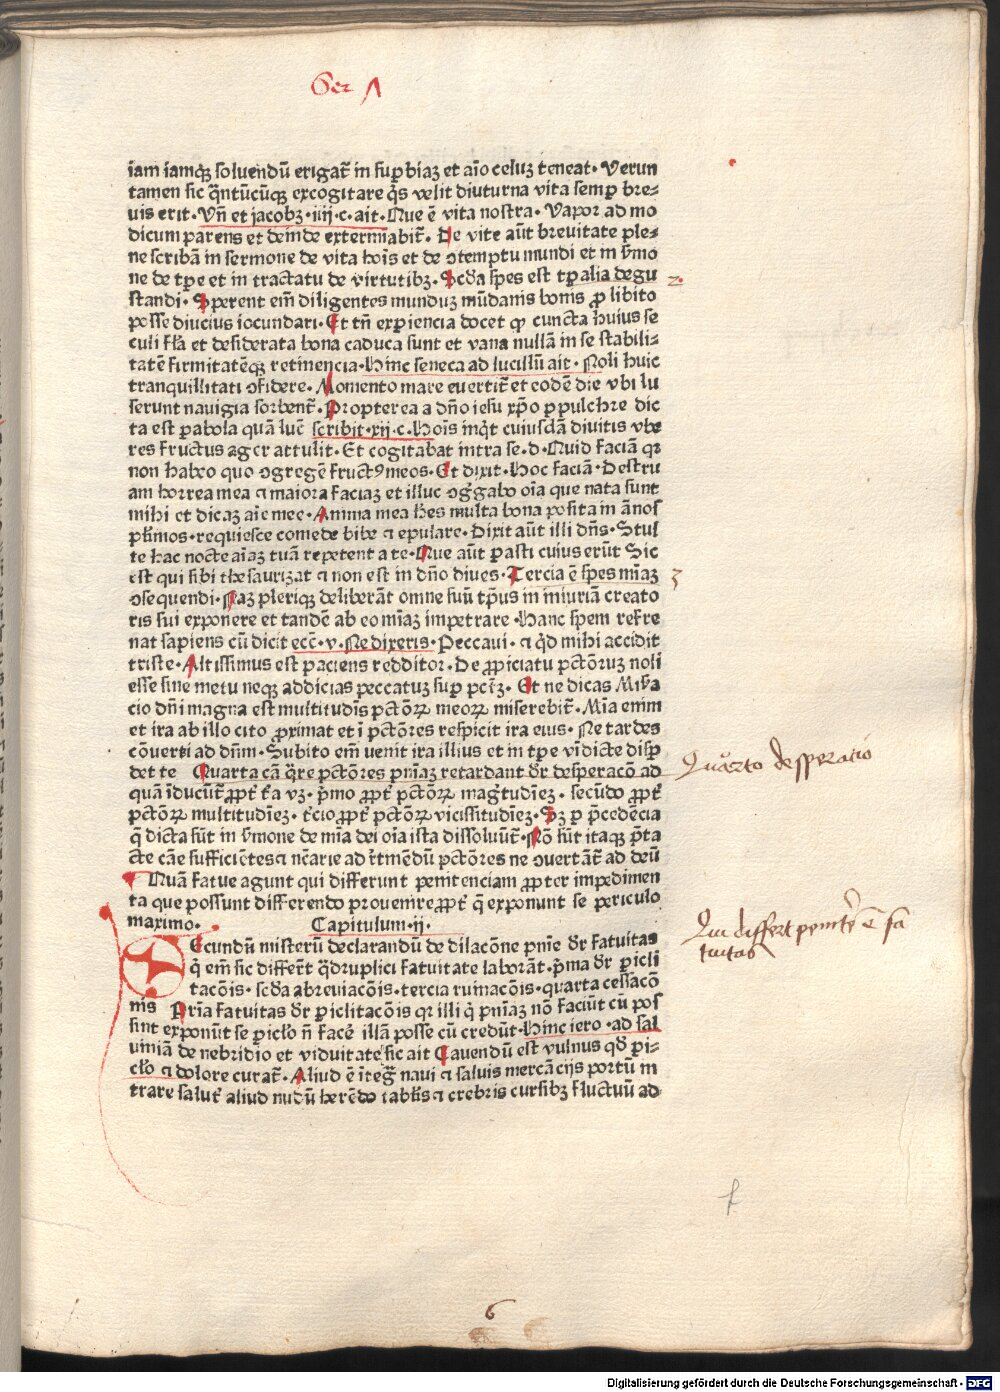 Ser 1
iam iamqꝫ soluendū erigat̄ in suꝑbiaꝫ et aīo celuꝫ teneat. Verun
tamen sic q̄ntūcūqꝫ excogitare q̄s velit diuturna vita semꝑ bre-
uis erit. Vn̄ et jacobꝫ .iiij. c. ait. Que ē vita nostra. Vapor ad mo
dicum parens et deinde exterminabit̄. De vite aūt breuitate ple-
ne scribā in sermone de vita hoīs et de ꝯtemptu mundi et in ẜmo
ne de tꝑe et in tractatu de virtutibꝫ. Scd̄a spes est tꝑalia degu
2.
standi. Sperent em̄ diligentes munduꝫ mūdanis bonis ꝓ libito
posse diucius iocundari. Et tn̄ exꝑiencia docet ꝙ cuncta huius se
culi fl̄a et desiderata bona caduca sunt et vana nullā in se stabili-
tatē firmitatēqꝫ retinencia. Hinc seneca ad lucillū ait. Noli huic
tranquillitati ꝯfidere. Momento mare euertit̄ et eodē die vbi lu
serunt nauigia sorbent̄. Propterea a dn̄o iesu xp̄o ꝑpulchre dic
ta est ꝑabola quā luc̄ scribit .xij. c. Hoīs inq̇t cuiusdā diuitis vbe
res fructus ager attulit. Et cogitabat intra se .d. Quid faciā qꝛ
non habeo quo ꝯgregē fructꝰ meos. Et dixit. Hoc faciā. Destru
am horrea mea ⁊ maiora faciaꝫ et illuc ꝯg̃gabo oīa que nata sunt
mihi et dicaꝫ aīe mee. Anima mea hēs multa bona posita in ānos
pl̄imos. requiesce comede bibe ⁊ epulare. Dixit aūt illi dn̄s. Stul
te hac nocte aīaꝫ tuā repetent a te. Que aūt ꝑasti cuius erūt Sic
est qui sibi thesaurizat ⁊ non est in dn̄o diues. Tercia ē spes mīaꝫ
3
ꝯsequendi. Naꝫ pleriqꝫ deliberāt omne suū tp̄us in iniuriā creato
ris sui exponere et tandē ab eo mīaꝫ impetrare. Hanc spem refre
nat sapiens cū dicit ecc̄. v. Ne dixeris. Peccaui. ⁊ q̇d mihi accidit
triste. Altissimus est paciens redditor. De ꝓpiciatu pctōruꝫ noli
esse sine metu neqꝫ addicias peccatuꝫ suꝑ pct̄ꝫ. Et ne dicas Miẜa
cio dn̄i magna est multitudīs pctōꝝ meoꝝ miserebit̄. Mīa enim
et ira ab illo cito ꝓximat et ī pctōres respicit ira eius. Ne tardes
cōuerti ad dn̄m. Subito em̄ venit ira illius et in tꝑe vīdicte disꝑ
det te Quarta cā q̄re pctōres pn̄iaꝫ retardant dr̄ desperacō ad
Quarto desperatio
quā īducūt̄ ꝓpt̄ t̄a vꝫ. p̄mo ꝓpt̄ pctōꝝ mag̃tudīeꝫ. secūdo ꝓpt̄
pctōꝝ multitudīeꝫ. t̄cio ꝓpt̄ pctōꝝ vicissitudīeꝫ. Sꝫ ꝑ p̄cedēcia
q̄ dicta sūt in ẜmone de mīa dei oīa ista dissoluūt̄. Nō sūt itaqꝫ p̄ta
cte cāe sufficiētes ⁊ nc̄arie ad r̄tinēdū pctōres ne ꝯuertāt̄ ad deū
Quā fatue agunt qui differunt penitenciam ꝓpter impedimen
ta que possunt differendo prouenire ꝓpt̄ q̄ exponunt se periculo
maximo. Capitulum .ij.
Qui differt penitēr ē fa
tuitas
Ecundū misteriū declarandū de dilacōne pn̄ie dr̄ fatuitas
q̇ em̄ sic differt̄ q̄druplici fatuitate laborāt. p̄ma dr̄ ꝑicli
tacōis. scd̄a abreuiacōis. tercia ruinacōis. quarta cessacō
nis Prīa fatuitas dr̄ ꝑiclitacōis qꝛ illi q̇ pn̄iaꝫ nō faciūt cū pos
sint exponūt se ꝑiclo n̄ facē illā posse cū credūt. Hinc iero. ad sal
uiniā de nebridio et viduitate sic ait Cauendū est vulnus qd̄ ꝑi-
clo ⁊ dolore curat̄. Aliud ē īteg̃ naui ⁊ saluis mercācijs portū in
trare salut̄ aliud nudū herēdo tabl̄is ⁊ crebris cursibꝫ fluctuū ad
f
6
Digitalisierung gefördert durch die Deutsche Forschungsgemeinschaft - DFG